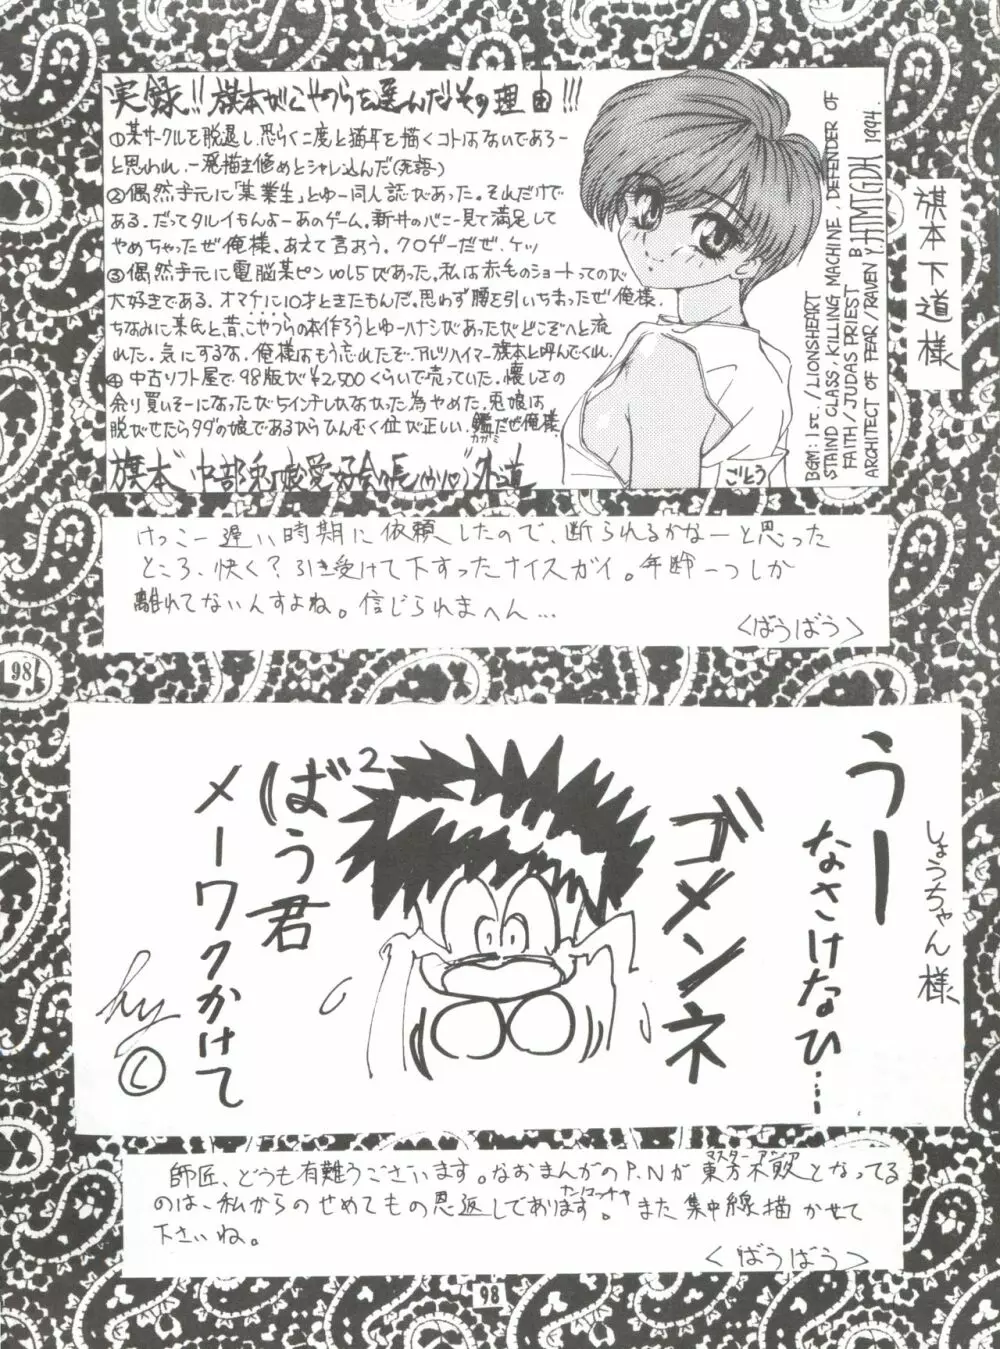 実録!! 旗本がこやつらを選んだその理由!!!
①某サークルを脱退し、恐らく二度と猫耳を描くコトはないであろー
と思われ、一発描き修めとシャレ込んだ(死語)
②偶然手元に「某業生」とゆー同人誌があった。それだけで
ある。だってタルイもんよーあのゲーム。新サのバニー見て満足して
やめちゃったぜ俺様、あえて言おう、クロゲーだぜ、ケッ
③偶然手元に電脳某ピンvol5があった。私は赤毛のショートってのが
大好きである。オマケに10才ときたもんだ。思わず腰を引いちまったぜ俺様。
ちなみに某氏と昔、こやつらの本作ろうとゆーハナシがあったがどこぞへと流
れた。気にするな、俺様はもう忘れたぞ。アルツハイマー旗本と呼んでくれ。
④中古ソフト屋で98版が¥2,500くらいで売っていた。懐しさの
余り買いそーになったが5インチしかなかった為やめた。兎娘は
脱がせたらタダの娘であるからひんむく位が正しい。鑑だぜ俺様
カガミ
旗本 中部兎娘愛好会々長 外道
ごとう
BGM: 1st. / LIONSHEART
STAND CLASS KILLING MACHINE DEFENDER OF
FAITH / JUDAS PRIEST
ARCHITECT OF FEAR / RAVEN
BY.AHMTGDH
1994.
旗本下道様
けっこー遅い時期に依頼したので、断られるかなーと思った
ところ、快く?引き受けて下すったナイスガイ。年齢一つしか
離れてないんすよね。信じられまへん…
<ばうばう>
98
しょうちゃん様
うー
なさけなひ…
ゴメンネ
ばう²君
メーワクかけて
hy
©
師匠、どうも有難うございます。なおまんがのP.Nが東方不敗となってる
マスターアジア
のは、私からのせめてもの恩返しであります。また集中線描かせて
ナンローナヤ
下さいね。
<ばうばう>
98